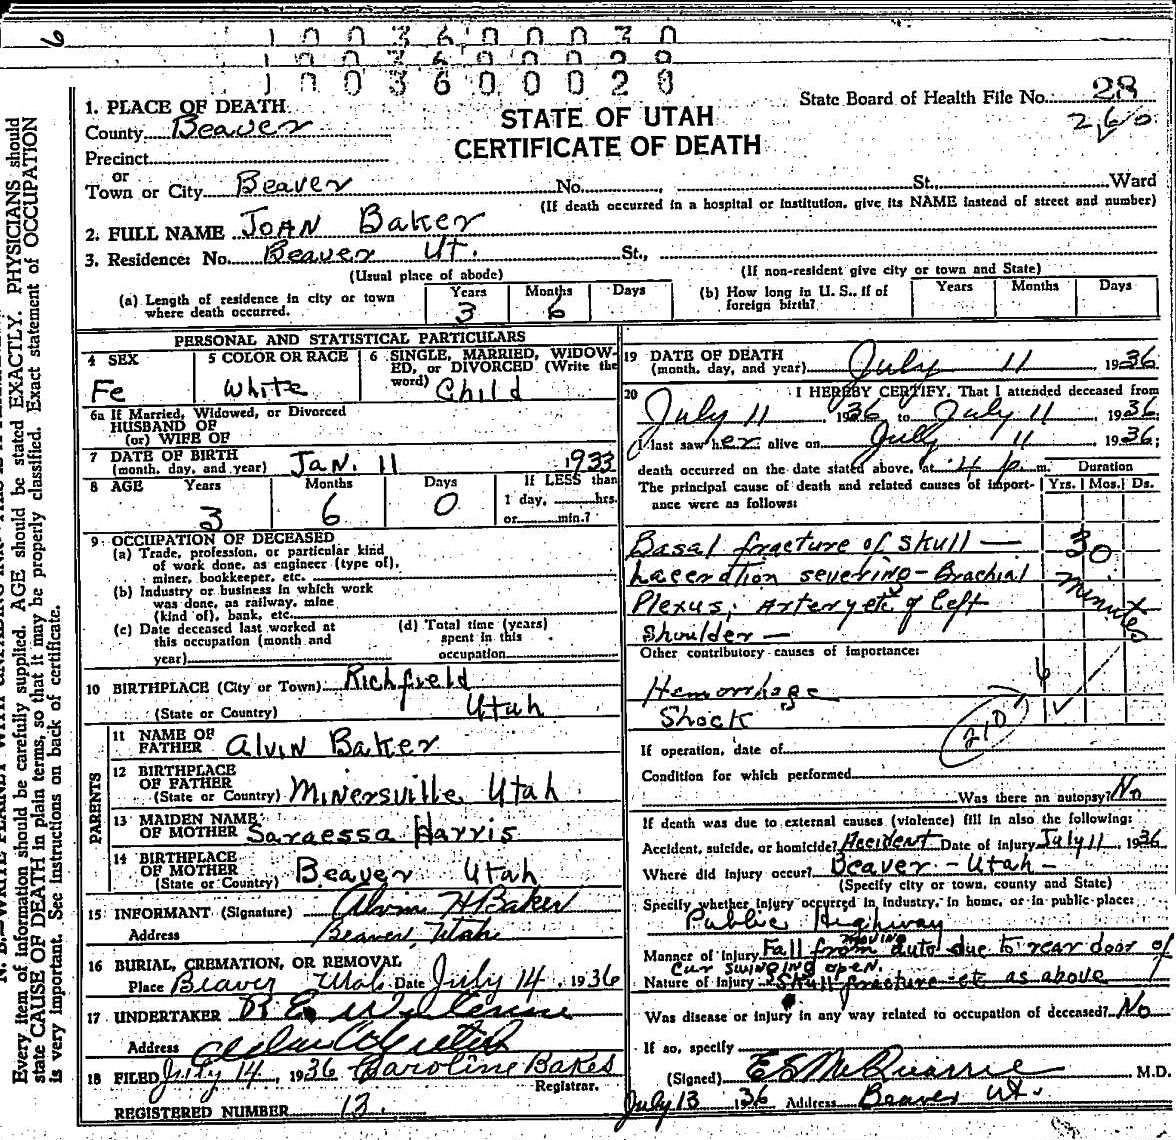 6
1 0 0 3 6 0 0 0 3 0
0 3 6 0 0 0 2 9
1 0 0 3 6 0 0 0 2 8
1. PLACE OF DEATH
State Board of Health File No. 28
County Beaver
STATE OF UTAH
260
Precinct
CERTIFICATE OF DEATH
or
Town or City Beaver No. , St. Ward
(If death occurred in a hospital or institution, give its NAME instead of street and number)
2. FULL NAME Joan Baker
3. Residence: No. Beaver Ut. St.,
(Usual place of abode) (If non-resident give city or town and State)
(a) Length of residence in city or town where death occurred. Years 3 Months 6 Days
(b) How long in U. S., if of foreign birth? Years Months Days
PERSONAL AND STATISTICAL PARTICULARS
4 SEX Fe
5 COLOR OR RACE White
6 SINGLE, MARRIED, WIDOWED, or DIVORCED (Write the word) Child
6a If Married, Widowed, or Divorced
HUSBAND OF
(or) WIFE OF
7 DATE OF BIRTH
(month, day, and year) Jan. 11 1933
8 AGE Years 3 Months 6 Days 0 If LESS than 1 day, hrs. or min.?
9 OCCUPATION OF DECEASED
(a) Trade, profession, or particular kind
of work done, as engineer (type of),
miner, bookkeeper, etc.
(b) Industry or business in which work
was done, as railway, mine
(kind of), bank, etc.
(c) Date deceased last worked at
this occupation (month and
year)
(d) Total time (years)
spent in this
occupation
10 BIRTHPLACE (City or Town) Richfield
(State or Country) Utah
PARENTS
11 NAME OF
FATHER Alvin Baker
12 BIRTHPLACE
OF FATHER
(State or Country) Minersville Utah
13 MAIDEN NAME
OF MOTHER Saraessa Harris
14 BIRTHPLACE
OF MOTHER
(State or Country) Beaver Utah
15 INFORMANT (Signature) Alvin H Baker
Address Beaver, Utah
16 BURIAL, CREMATION, OR REMOVAL
Place Beaver Utah Date July 14, 1936
17 UNDERTAKER
Address
18 FILED July 14, 1936 Caroline Bakes
Registrar.
REGISTERED NUMBER 13.
19 DATE OF DEATH
(month, day, and year) July 11, 1936
20 I HEREBY CERTIFY, That I attended deceased from
July 11, 1936 to July 11 1936
I last saw her alive on July 11 1936;
death occurred on the date stated above, at 4 p m.
Duration
The principal cause of death and related causes of importance were as follows: Yrs. Mos. Ds.
Basal fracture of skull — 30
Laceration severing - Brachial minutes
Plexus; Artery etc of left
Shoulder —
Other contributory causes of importance:
Hemorrhage
Shock
210
If operation, date of
Condition for which performed
Was there an autopsy? No
If death was due to external causes (violence) fill in also the following:
Accident, suicide, or homicide? Accident Date of injury July 11, 1936
Where did injury occur? Beaver - Utah -
(Specify city or town, county and State)
Specify whether injury occurred in industry, in home, or in public place:
Public Highway
Manner of injury Fall from moving auto due to rear door of
car swinging open.
Nature of injury Skull fracture etc as above
Was disease or injury in any way related to occupation of deceased? No
If so, specify
(Signed) E E McQuarrie M.D.
July 13, 36 Address Beaver Ut.
Every item of information should be carefully supplied. AGE should be stated EXACTLY. PHYSICIANS should
state CAUSE OF DEATH in plain terms, so that it may be properly classified. Exact statement of OCCUPATION
is very important. See instructions on back of certificate.